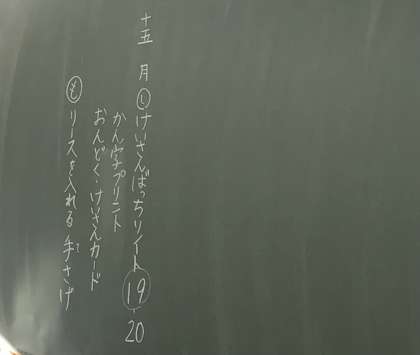 十五 月 し けいさんばっちりノート 19 20
かん字プリント
おんどく・けいさんカード
も リースを入れる手さげ